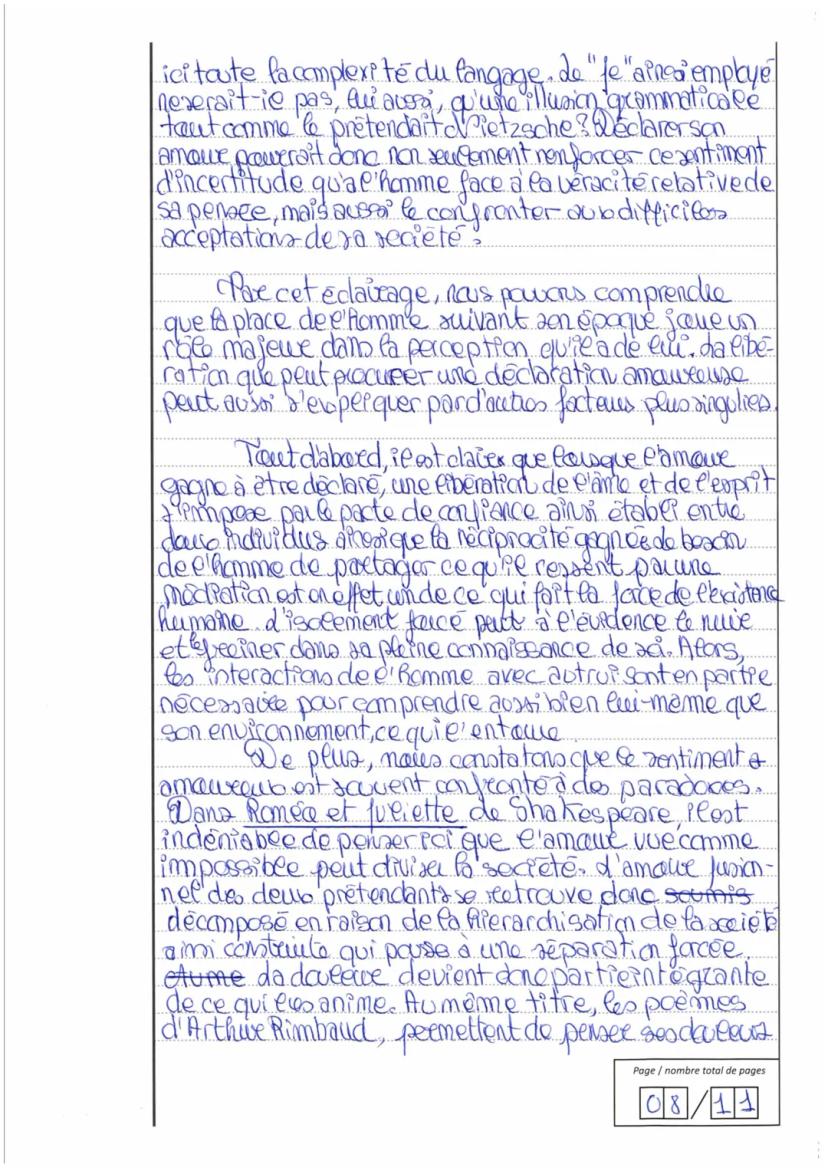 ici toute la complexité du langage. Le "Je" ainsi employé
ne serait-ie pas, lui aussi, qu'une illusion grammaticale
tout comme le prétendait Nietzsche ? Déclarer son
amour pourrait donc non seulement renforcer ce sentiment
d'incertitude qu'a l'homme face à la véracité relative de
sa pensée, mais aussi le confronter aux difficiles
acceptations de sa société.
Par cet éclairage, nous pouvons comprendre
que la place de l'Homme suivant son époque joue un
rôle majeur dans la perception qu'il a de lui. La libé-
ration que peut procurer une déclaration amoureuse
peut aussi s'expliquer par d'autres facteurs plus singuliers.
Tout d'abord, il est clair que lorsque l'amour
gagne à être déclaré, une libération de l'âme et de l'esprit
s'impose par le pacte de confiance ainsi établi entre
deux individus ainsi que la réciprocité gagnée. Le besoin
de l'homme de partager ce qu'il ressent par une
médiation est en effet un de ce qui fait la force de l'existence
humaine. L'isolement forcé peut à l'évidence le nuire
et le freiner dans sa pleine connaissance de soi. Alors,
les interactions de l'Homme avec autrui sont en partie
nécessaires pour comprendre aussi bien lui-même que
son environnement, ce qui l'entoure.
De plus, nous constatons que le sentiment
amoureux est souvent confronté à des paradoxes.
Dans Roméo et Juliette de Shakespeare, il est
indéniable de penser ici que l'amour vue comme
impossible peut diviser la société. L'amour fusion-
nel des deux prétendants se retrouve donc soumis
décomposé en raison de la hiérarchisation de la société
ainsi construite qui pousse à une séparation forcée.
et une La douleur devient donc partie intégrante
de ce qui les anime. Au même titre, les poèmes
d'Arthur Rimbaud, permettent de penser ses douleurs
Page / nombre total de pages
08/11